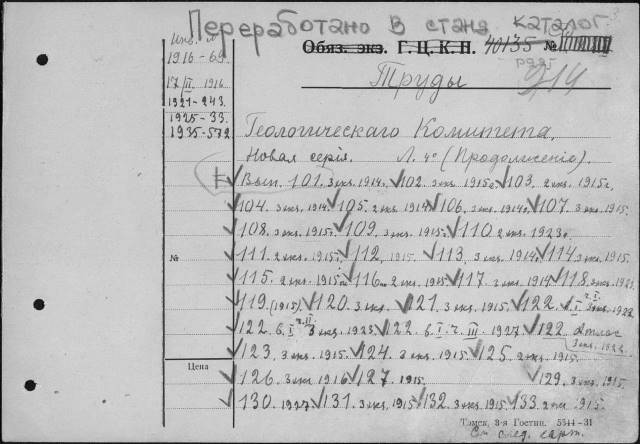 Переработано в станд. каталог.
Обяз. экз. Г. Ц. К. П. 40135 №
Инв. №
1916-69.
17/II. 1916
1921-243.
1925-33.
1935-572
Труды 214
Геологическаго Комитета.
Новая серія. Л. 4° (Продолженіе).
Вып. 101. 3 экз. 1914. 102. 3 экз. 1915г. 103. 2 экз. 1915г.
104. 3 экз. 1914. 105. 2 экз. 1914. 106. 3 экз. 1914г. 107. 3 экз. 1915.
108. 3 экз. 1915г. 109. 3 экз. 1915. 110. 2 экз. 1923г.
№ 111. 2 экз. 1915г. 112, 1915. 113, 3 экз. 1914. 114. 3 экз. 1915.
115. 2 экз. 1915. 116. 2 экз. 1915. 117. 2 экз. 1914. 118. 3 экз.
119. (1915). 120. 3 экз. 121. 3 экз. 1915. 122. в. I ч. I. 3 экз. 1922
122. в. I ч. II 3 экз. 1923. 122. в. I ч. III 1927. 122 Атлас 3 экз. 1922
123, 3 экз. 1915. 124. 2 экз. 1915. 125. 2 экз. 1915.
Цена 126. 3 экз. 1916. 127. 1915. 129. 3 экз. 1915.
130. 1927. 131. 3 экз. 1915. 132. 3 экз. 1915. 133. 2 экз. 1915.
Томск, 3-я Гостип. 5344-31
См. след. карт.